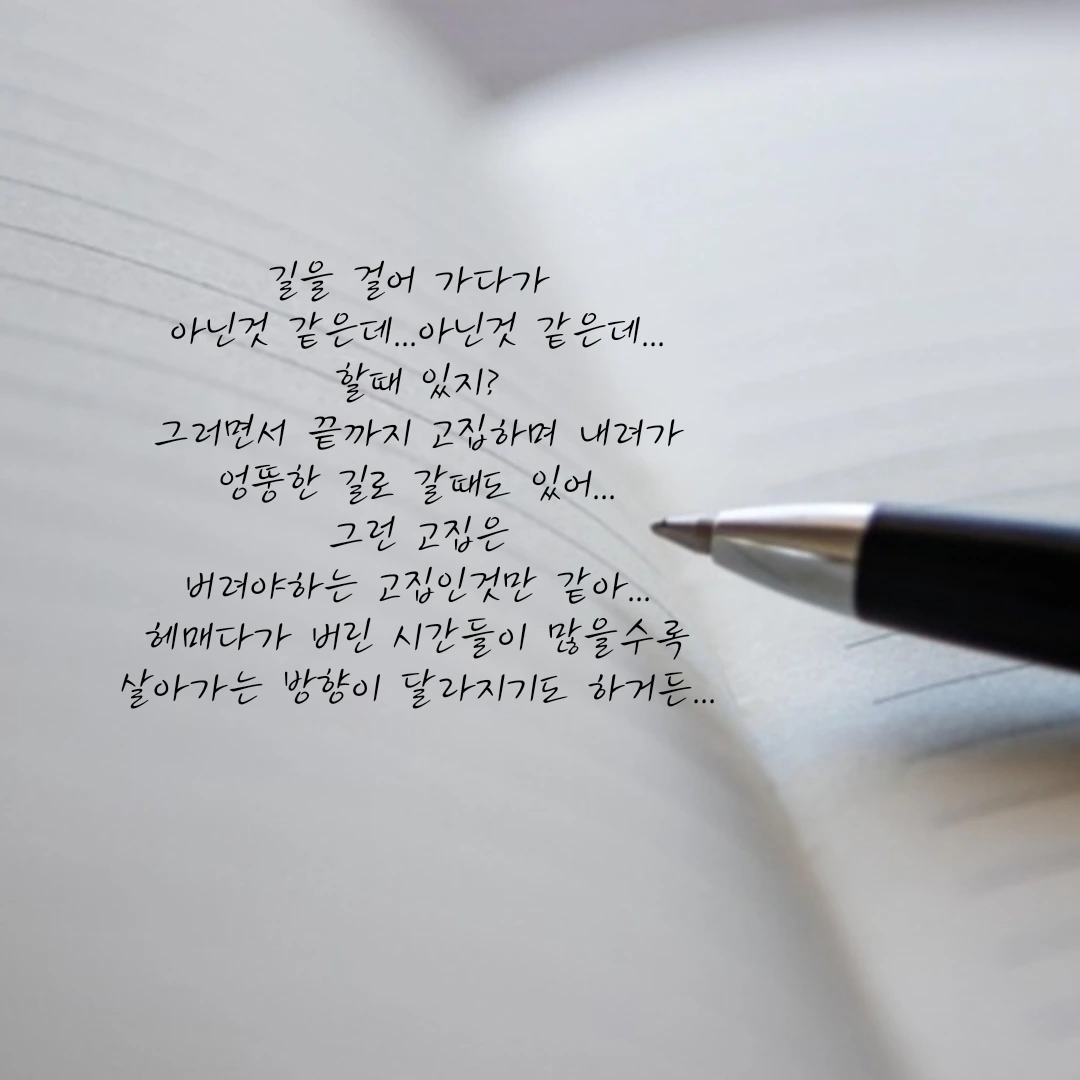 길을 걸어 가다가
아닌것 같은데...아닌것 같은데...
할때 있지?
그러면서 끝까지 고집하며 내려가
엉뚱한 길로 갈때도 있어...
그런 고집은
버려야하는 고집인것만 같아...
헤매다가 버린 시간들이 많을수록
살아가는 방향이 달라지기도 하거든...